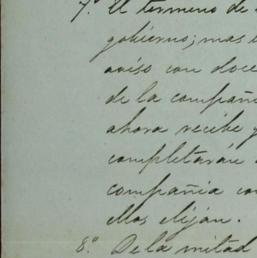 7.º El termino de
gobierno; mas
aviso con doce
de la compañi
ahora recibe y
completarán
compañia con
ellos elijan.
8.º De la mitad